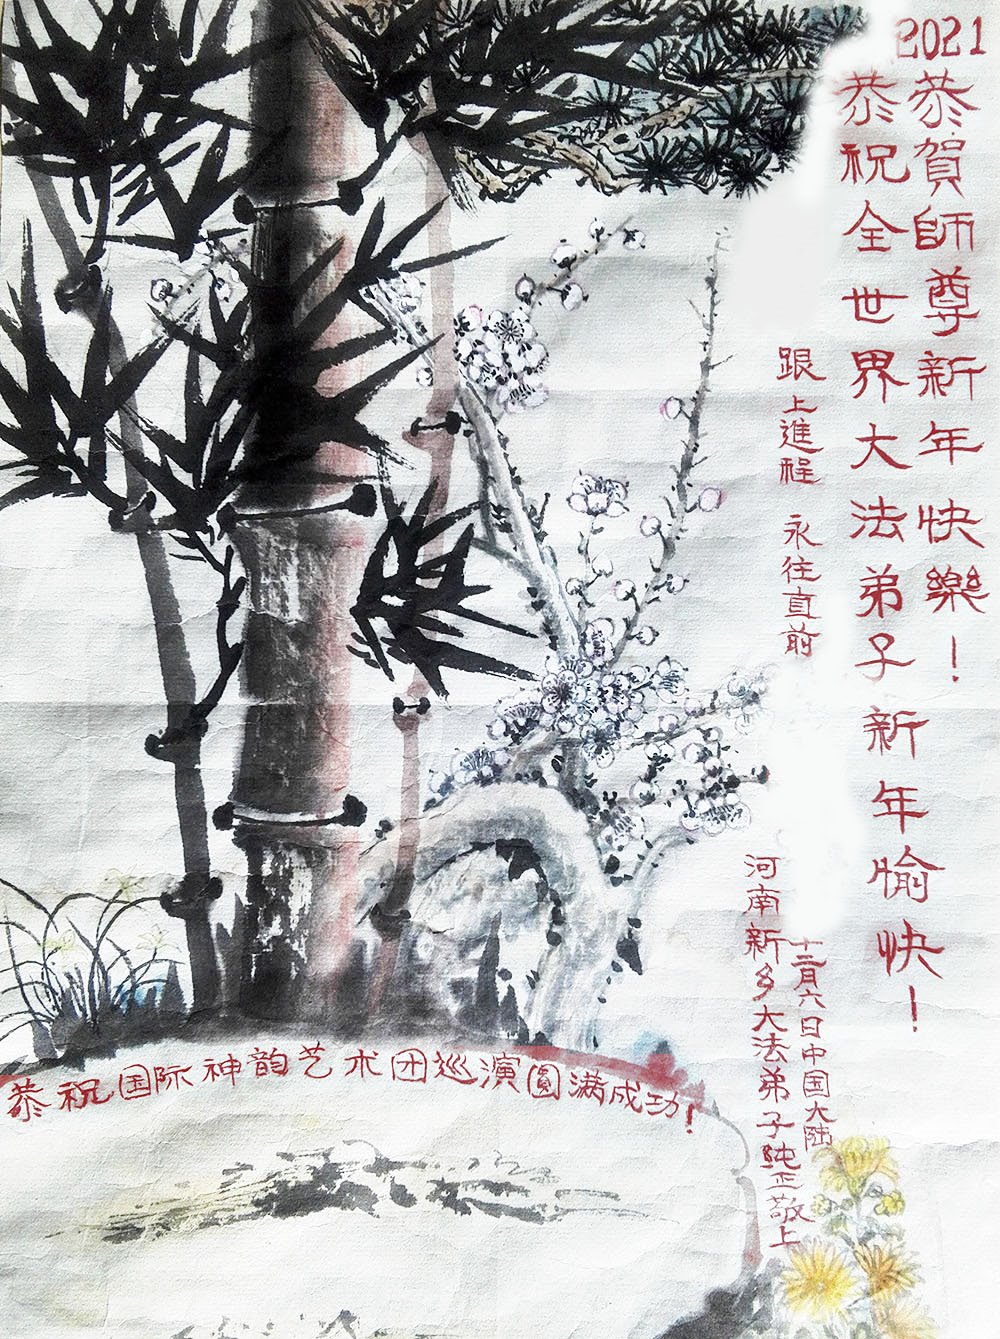 2021
恭賀師尊新年快樂！
恭祝全世界大法弟子新年愉快！
跟上進程 永往直前
十二月六日中国大陆
河南新乡大法弟子純正敬上
恭祝国际神韵艺术团巡演圓满成功！